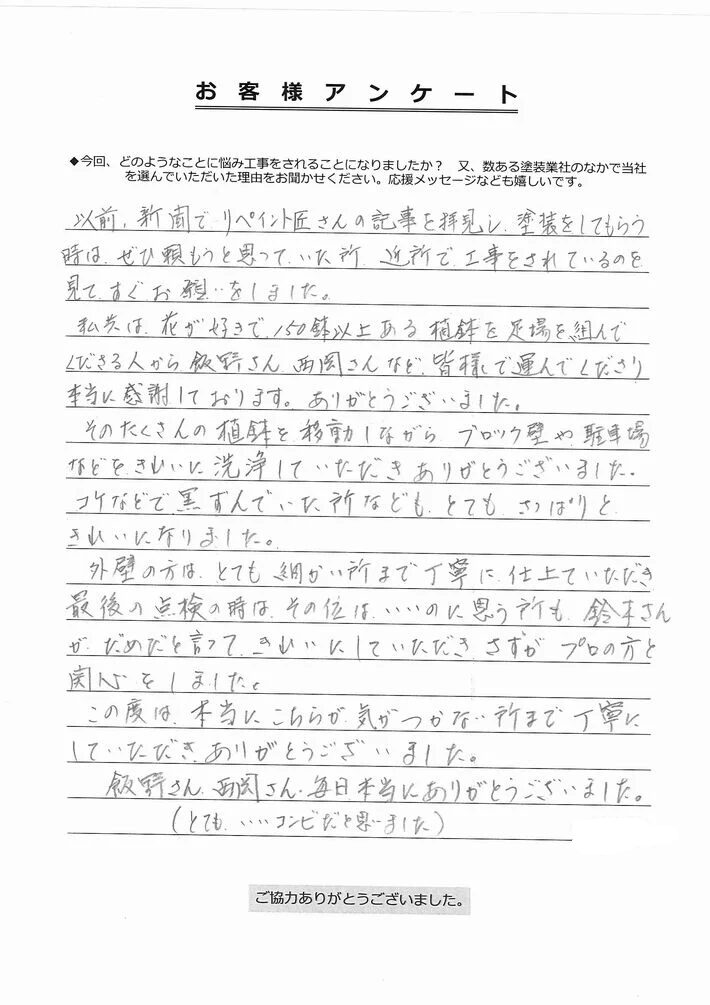 お客様アンケート
◆今回、どのようなことに悩み工事をされることになりましたか？ 又、数ある塗装業社のなかで当社
を選んでいただいた理由をお聞かせください。応援メッセージなども嬉しいです。
以前、新聞で、リペイント匠さんの記事を拝見し、塗装をしてもらう
時は、ぜひ頼もうと思って、いた所、近所で、工事をされているのを
見て、すぐお願いをしました。
私共は、花が好きで、150鉢以上ある植鉢を足場を組んで
くださる人から飯野さん、西岡さんなど、皆様で運んでくださり
本当に感謝しております。ありがとうございました。
そのたくさんの植鉢を移動しながら ブロック壁や、駐車場
などをきれいに洗浄していただきありがとうございました。
コケなどで黒ずんでいた所なども、とても、さっぱりと
きれいになりました。
外壁の方は、とても細かい所まで丁寧に仕上ていただき
最後の点検の時は、その位は、いいのに思う所も、鈴木さん
が、だめだと言って、きれいにしていただき、さすが プロの方と
関心をしました。
この度は、本当にこちらが気がつかない所まで丁寧に
していただき、ありがとうございました。
飯野さん、西岡さん、毎日本当にありがとうございました。
(とても、いいコンビだと思いました)
ご協力ありがとうございました。